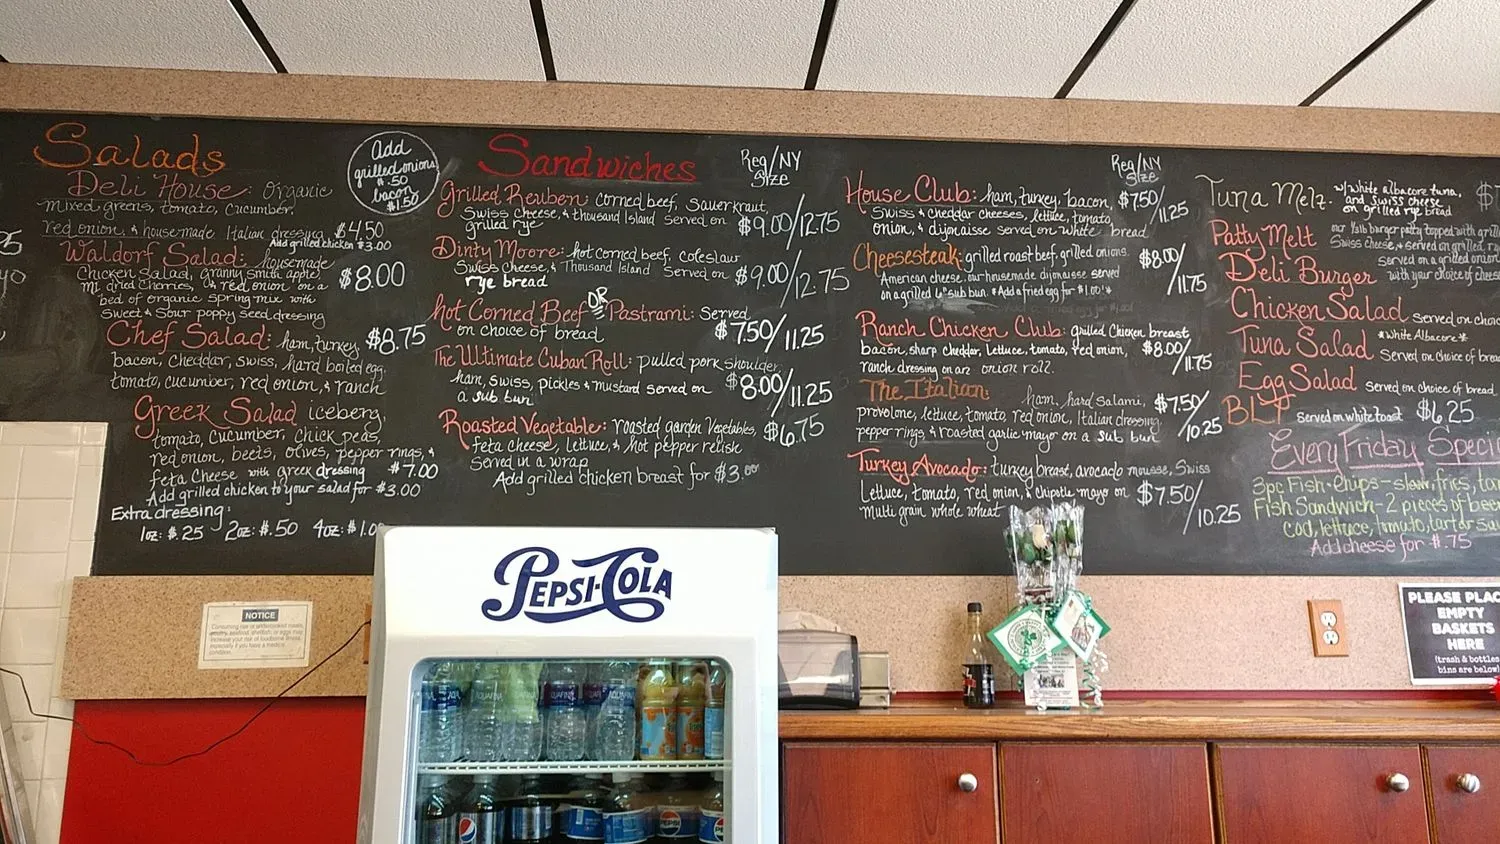 Salads
Add
grilled onions
$.50
bacon
$1.50
Deli House: Organic
mixed greens, tomato, cucumber,
red onion, & housemade Italian dressing $4.50
Add grilled chicken $3.00
Waldorf Salad: housemade
Chicken Salad, granny smith apple,
mi dried cherries, & red onion on a $8.00
bed of organic spring mix with
Sweet & Sour poppy seed dressing
Chef Salad: ham, turkey, $8.75
bacon, cheddar, swiss, hard boiled egg,
tomato, cucumber, red onion, & ranch
Greek Salad iceberg,
tomato, cucumber, chick peas,
red onion, beets, olives, pepper rings, &
feta cheese with greek dressing $7.00
Add grilled chicken to your salad for $3.00
Extra dressing:
1oz: $.25 2oz: $.50 4oz: $1.0
Sandwiches
Reg/NY
Size
Grilled Reuben: corned beef, Sauerkraut,
Swiss cheese, & thousand Island Served on $9.00/12.75
grilled rye
Dinty Moore: hot corned beef, coleslaw
Swiss Cheese, & Thousand Island Served on $9.00/12.75
rye bread
Hot Corned Beef OR Pastrami: Served
on choice of bread $7.50/11.25
The Ultimate Cuban Roll: pulled pork shoulder,
ham, swiss, pickles & mustard served on $8.00/11.25
a sub bun
Roasted Vegetable: roasted garden vegetables, $6.75
feta cheese, lettuce, & hot pepper relish
Served in a wrap
Add grilled chicken breast for $3.00
Reg/NY
Size
House Club: ham, turkey, bacon, $7.50/11.25
Swiss & cheddar cheeses, lettuce, tomato,
onion, & dijonaisse served on white bread
Cheesesteak: grilled roast beef, grilled onions, $8.00/11.75
American cheese, our housemade dijonaisse served
on a grilled 6" sub bun. *Add a fried egg for $1.00!*
Ranch Chicken Club: grilled chicken breast
bacon, sharp cheddar, lettuce, tomato, red onion, $8.00/11.75
ranch dressing on an onion roll.
The Italian: ham, hard salami, $7.50/10.25
provolone, lettuce, tomato, red onion, Italian dressing,
pepper rings, & roasted garlic mayo on a sub bun
Turkey Avocado: turkey breast, avocado mousse, Swiss
Lettuce, tomato, red onion, & chipotle mayo on $7.50/10.25
multi grain whole wheat
Tuna Melt: w/white albacore tuna, $7
and Swiss cheese
on grilled rye bread
Patty Melt our 1/2lb burger patty topped with grill
Swiss cheese, & served on grilled, ry
Deli Burger served on a grilled onion
with your choice of chees
Chicken Salad Served on choic
Tuna Salad *White Albacore*
Served on choice of brea
Egg Salad Served on choice of bread
BLT Served on white toast $6.25
Every Friday Speci
3pc Fish & Chips - slaw, fries, tar
Fish Sandwich - 2 pieces of beer
cod, lettuce, tomato, tartar sau
Add cheese for $.75
PEPSI-COLA
NOTICE
Consuming raw or undercooked meats,
poultry, seafood, shellfish, or eggs may
increase your risk of foodborne illness,
especially if you have a medical
condition.
AQUAFINA
pepsi
PLEASE PLAC
EMPTY
BASKETS
HERE
(trash & bottles
bins are below)